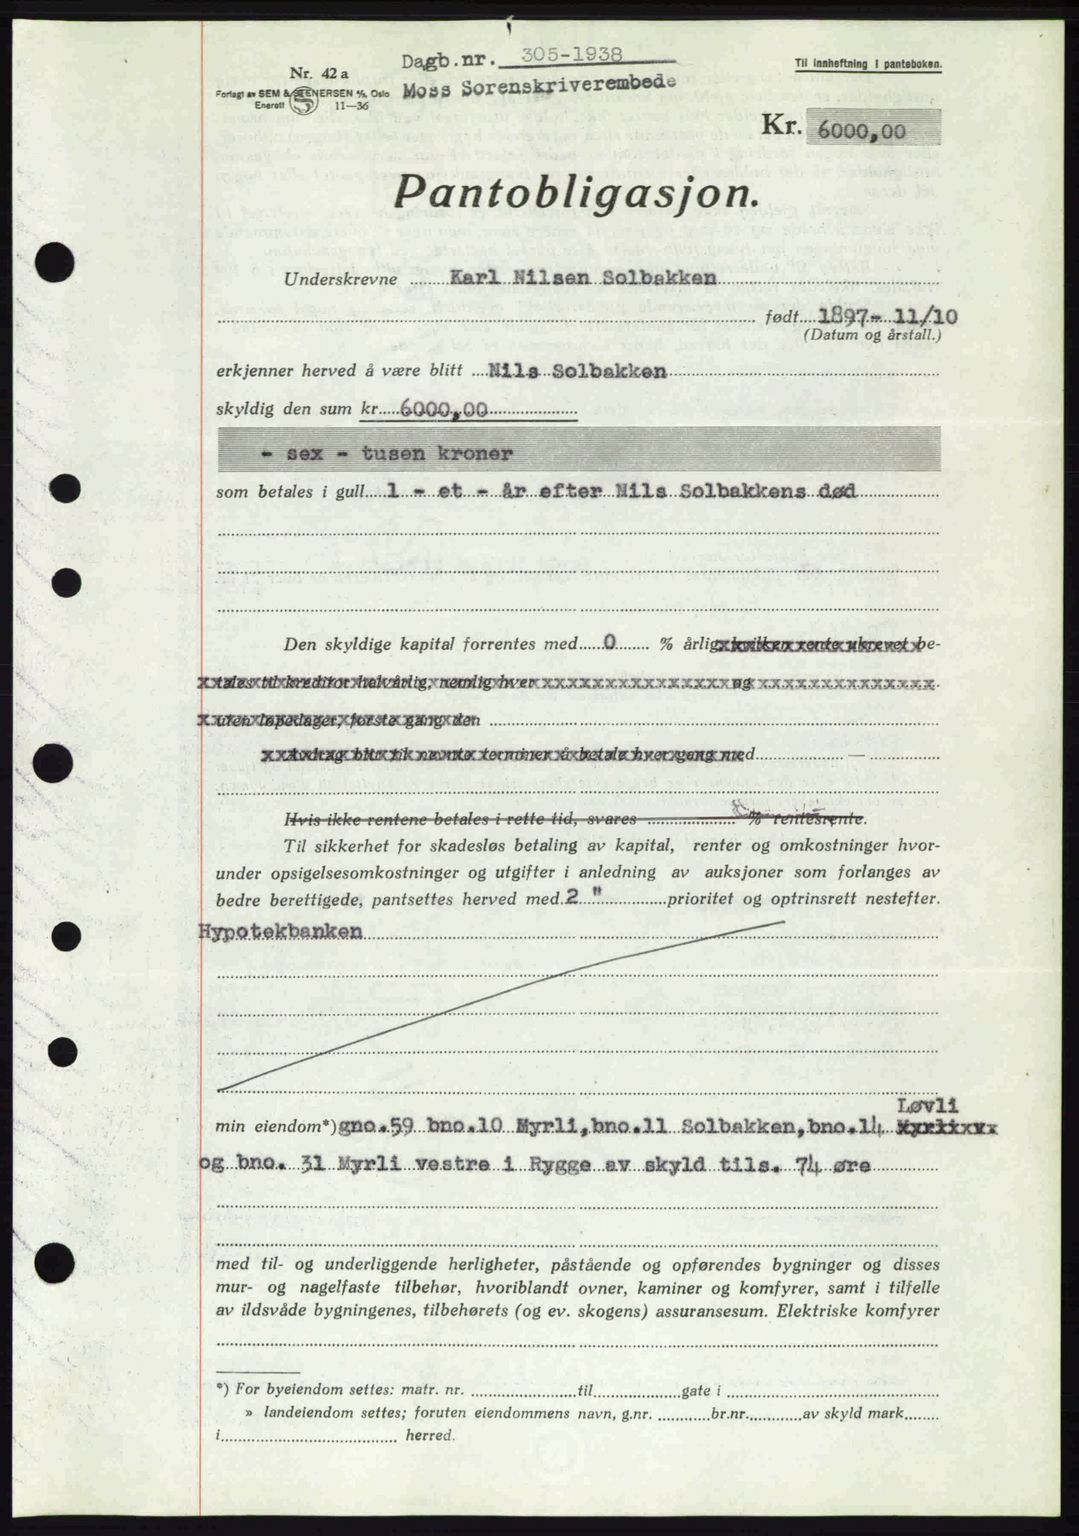 Dagb.nr. 305-1938
Til innheftning i panteboken.
Nr. 42 a
Forlagt av SEM & STENERSEN A/S, Oslo
Enerett 11—36
Moss Sorenskriverembede
Kr. 6000,00
Pantobligasjon.
Underskrevne Karl Nilsen Solbakken
født 1897- 11/10
(Datum og årstall.)
erkjenner herved å være blitt Nils Solbakken
skyldig den sum kr. 6000,00
- sex - tusen kroner
som betales i gull 1 - et - år efter Nils Solbakkens død
Den skyldige kapital forrentes med 0 % årlig, hvilken rente ukrevet be-
tales til kreditor halvårlig, nemlig hver og
uten løpedager, første gang den
Avdrag blir til nevnte terminer å betale hver gang med —
Hvis ikke rentene betales i rette tid, svares % rentesrente.
Til sikkerhet for skadesløs betaling av kapital, renter og omkostninger hvor-
under opsigelsesomkostninger og utgifter i anledning av auksjoner som forlanges av
bedre berettigede, pantsettes herved med 2 " prioritet og optrinsrett nestefter.
Hypotekbanken
Løvli
min eiendom*) gno.59 bno.10 Myrli,bno.11 Solbakken,bno.14 Myrlixxx
og bno. 31 Myrli vestre i Rygge av skyld tils. 74 øre
med til- og underliggende herligheter, påstående og opførendes bygninger og disses
mur- og nagelfaste tilbehør, hvoriblandt ovner, kaminer og komfyrer, samt i tilfelle
av ildsvåde bygningenes, tilbehørets (og ev. skogens) assuransesum. Elektriske komfyrer
*) For byeiendom settes: matr. nr. til gate i
» landeiendom settes; foruten eiendommens navn, g.nr. br.nr. av skyld mark
i herred.